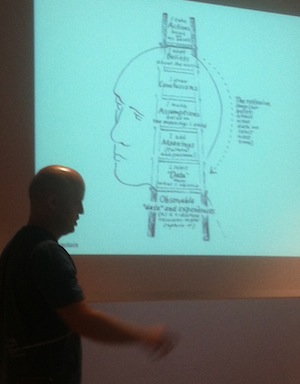 I take
Actions
based on
my beliefs
I adopt
Beliefs
about the world
I draw
Conclusions
I make
Assumptions
based on
the meanings I added
I add
Meanings
(cultural
and personal)
I select
"Data"
from
what I observe
Observable
"data" and experiences
The reflexive
loop (our
beliefs
affect
what
data we
select
next
time)